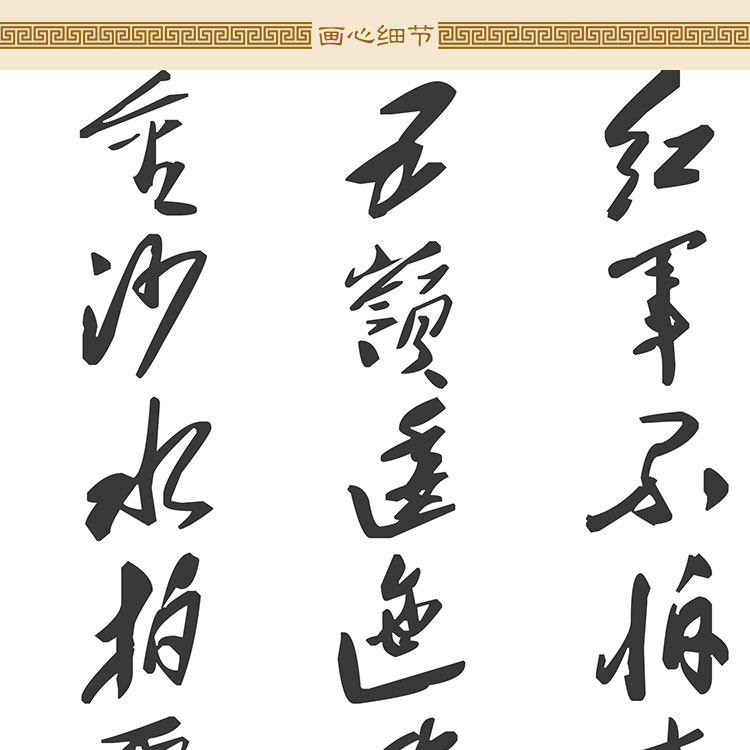 画心细节
红军不怕
五嶺逶迤
金沙水拍